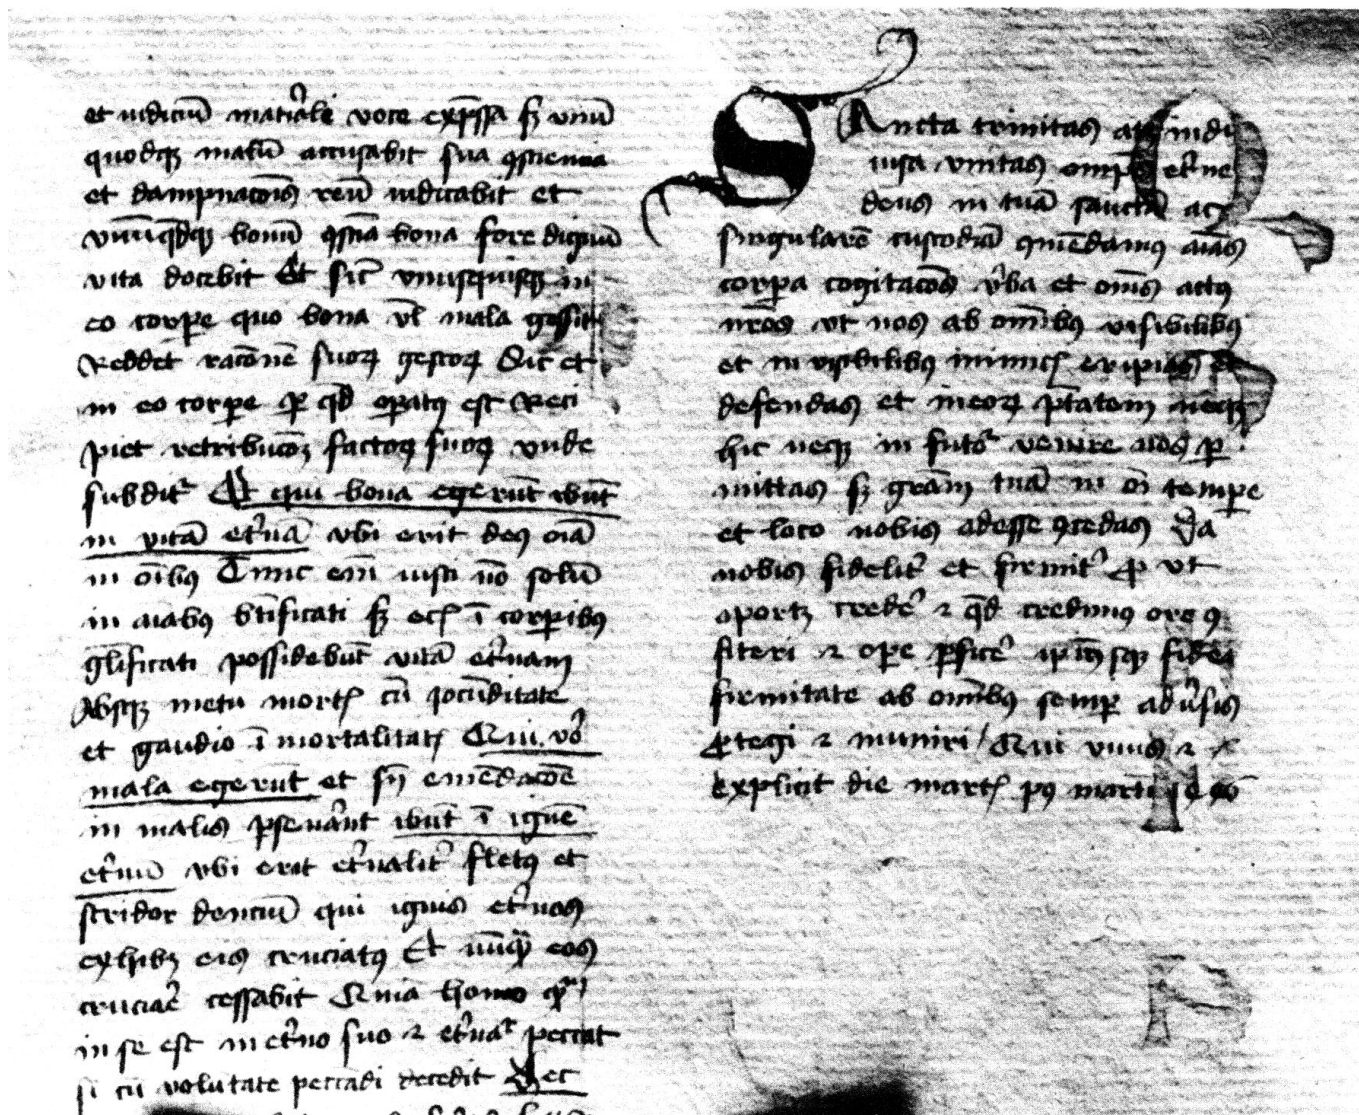 et iudiciū mat'iale voce exp̄ssa sꝫ vnū
quodqꝫ malū accusabit sua ꝯsciencia
et dampnacōis reū iudicabit et
vnūqdqꝫ bonū ꝯsciā bona fore dignū
vita docebit Et sic vnusquisqꝫ in
eo corꝑe quo bona vl mala gessit
Reddet racōnē suoꝝ gestoꝝ Sic et
in eo corꝑe ꝑ qd opatꝰ est Reci
piet retribucōꝫ factoꝝ suoꝝ vnde
subdit' Et qui bona egerūt ibūt
in vitā et'nā vbi erit deꝰ oīa
in oībꝰ Tunc em̄ iusti nō solū
in aīabꝰ btificati sꝫ ī corꝑibꝰ
glificati possidebūt vitā et'nam
Absqꝫ metu mortꝭ cū iocūditate
et gaudio īmortalitatꝭ Qui vo'
mala egerūt et sn̄ emēdacōe
in malis ꝑseu'ant ibūt ī ignē
et'nū vbi erit et'nalit' fletꝰ et
stridor denciū qui ignis et'nos
exhibꝫ eis cruciatꝰ Et nūq eos
cruciar' cessabit Quia homo
in se est in et'no suo ⁊ et'nat' peccat
si cū volūtate peccādi decedit Hec
SAncta trinitas atqꝫ indi
uisa vnitas omp̄s et'ne
deus in tuā sanctā ac
singularē custodiā ꝯmēdamꝰ aīas
corpa cogitacōes v'ba et om̄s actꝰ
nr̄os vt nos ab om̄ibꝰ visibilibꝰ
et inuisibilibꝰ inimicꝭ eripias et
defendas et in eoꝝ ptātem neqꝫ
hic neqꝫ in futo' venire nos ꝑ
mittas sꝫ grām tuā in oī tempe
et loco nobis adesse ꝯcedas Da
nobis fidelit' et firmit' ꝓ vt
oportꝫ creder' ⁊ qd credimꝰ ore ꝯ
fiteri ⁊ ope ꝑficer' ipiusqꝫ fidei
firmitate ab om̄ibꝰ semꝑ adu'sis
ꝓtegi ⁊ muniri Qui viuis ⁊ c̄
Explicit die martꝭ pꝰ martini